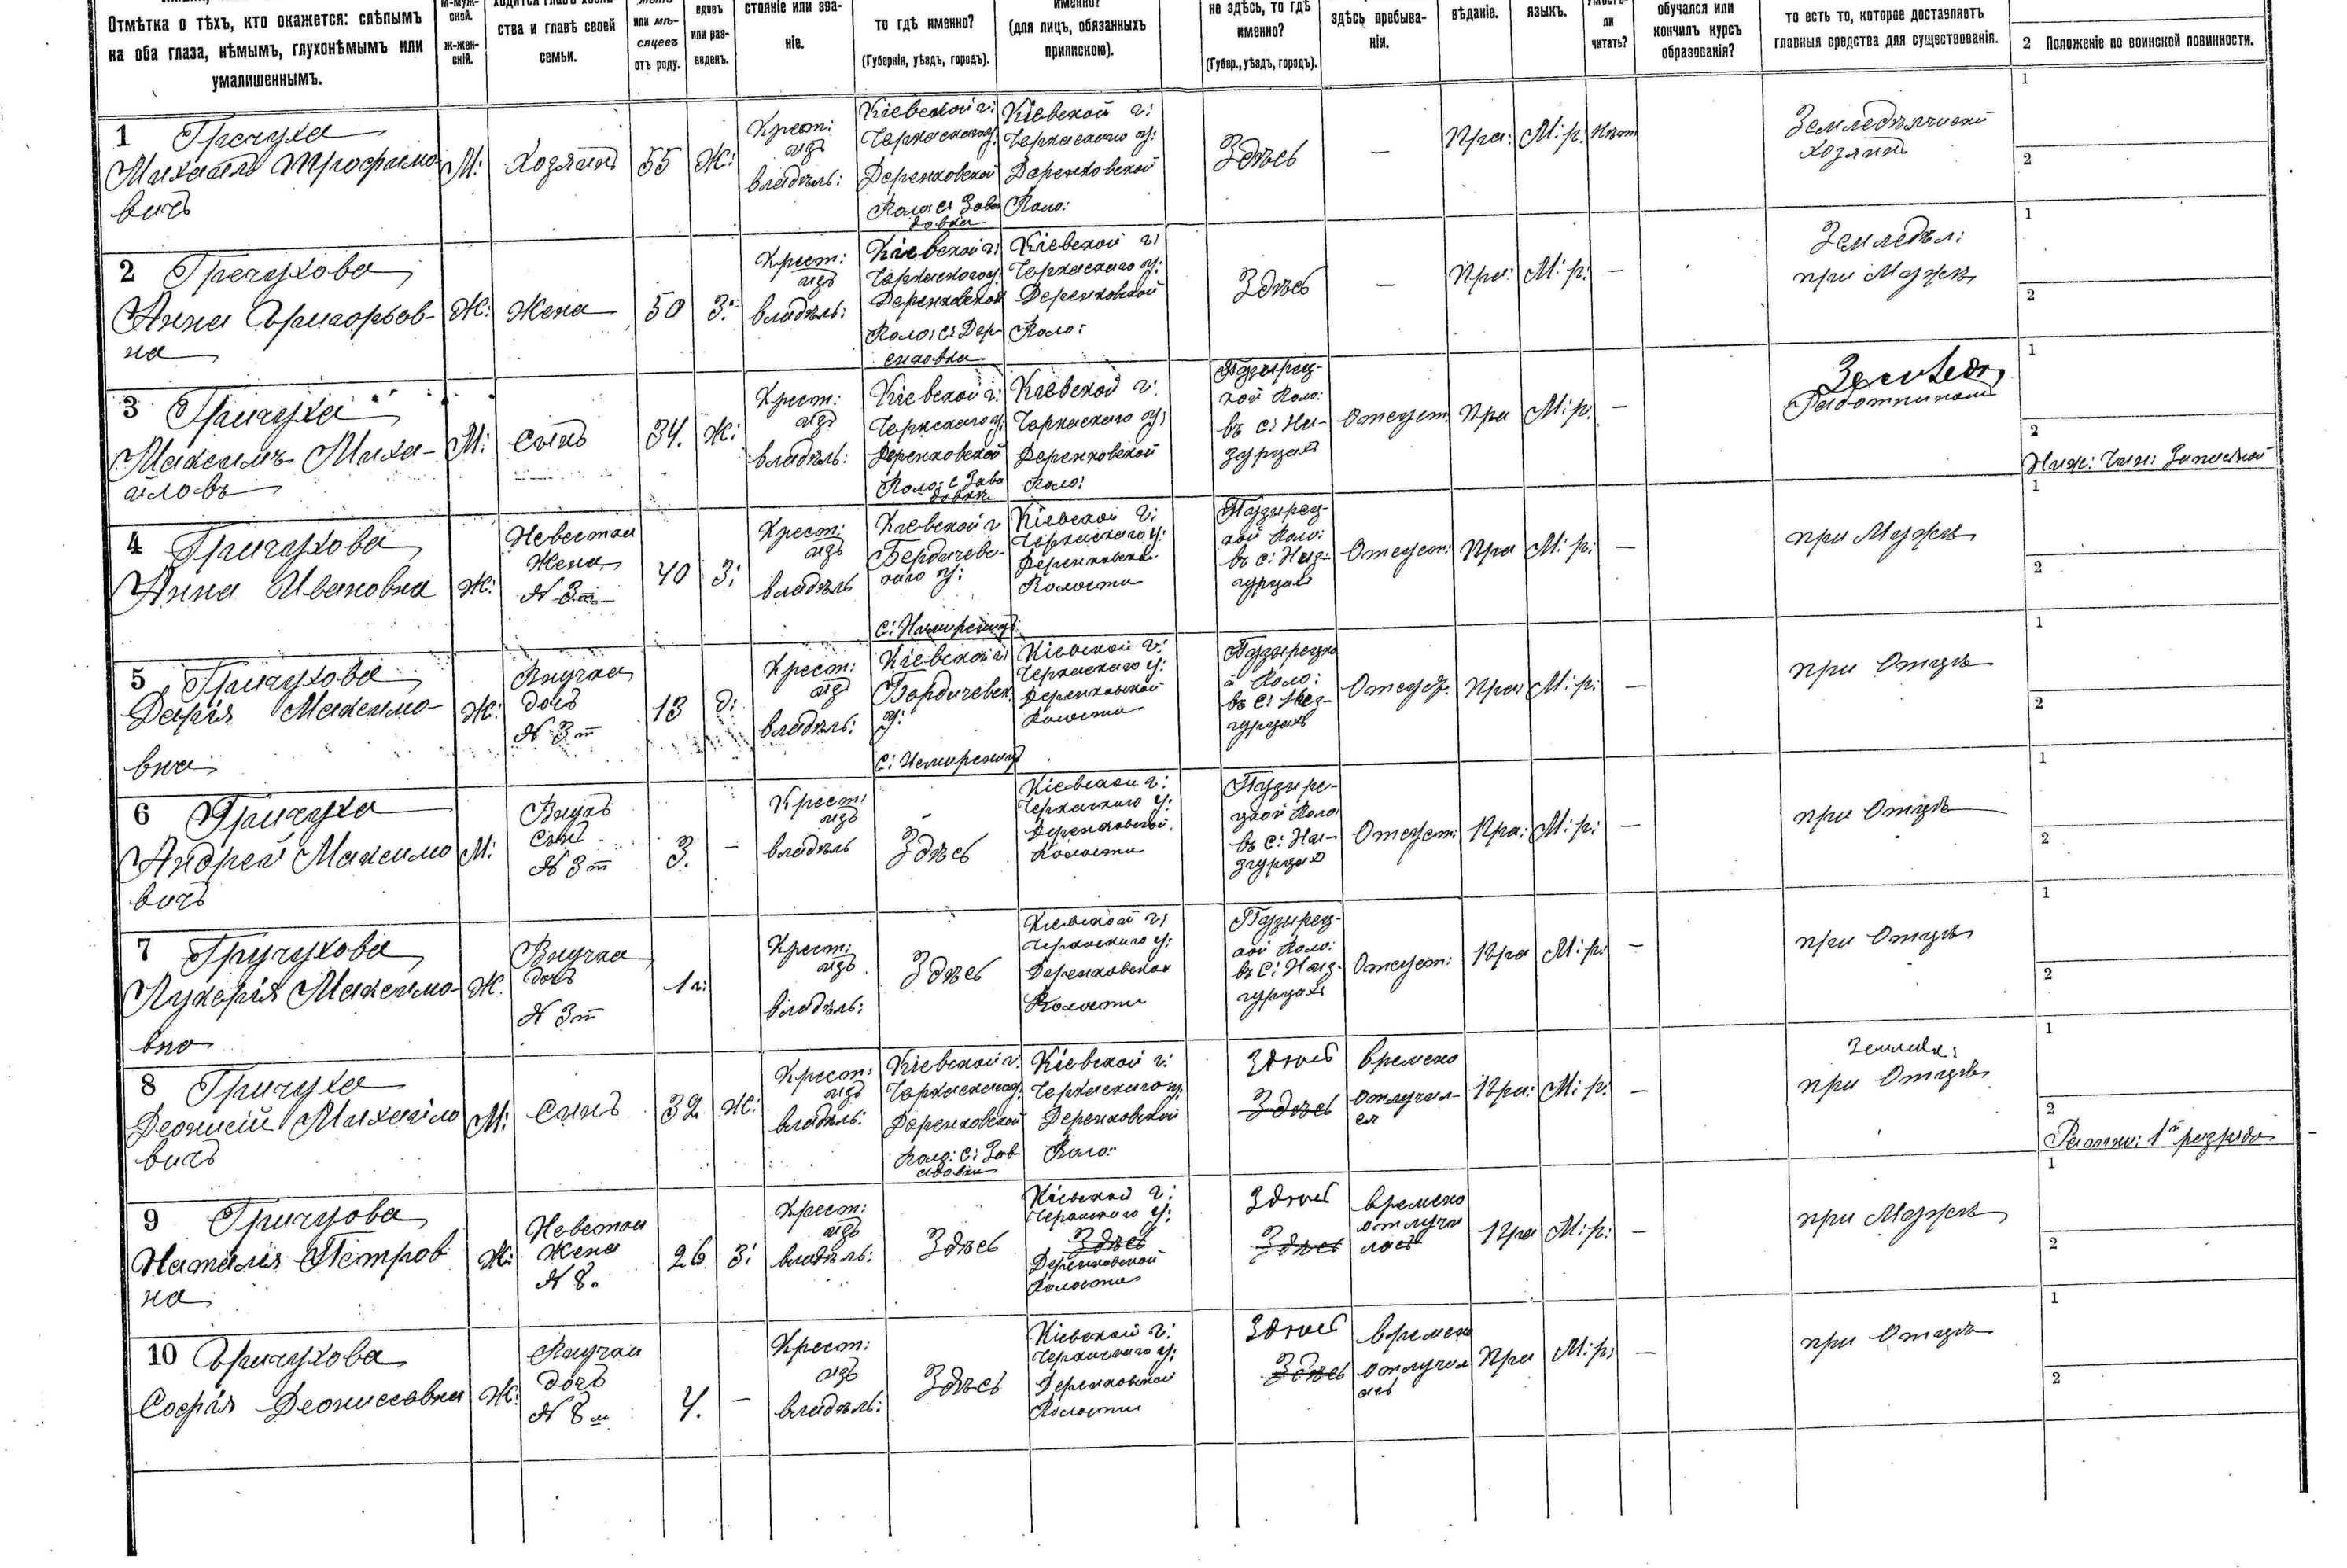 Отмѣтка о тѣхъ, кто окажется: слѣпымъ
на оба глаза, нѣмымъ, глухонѣмымъ или
умалишеннымъ.
м-муж-
ской.
ж-жен-
скій.
ства и главѣ своей
семьи.
или мѣ-
сяцевъ
отъ роду.
вдовъ
или раз-
веденъ.
стояніе или зва-
ніе.
то гдѣ именно?
(Губернія, уѣздъ, городъ).
именно?
(для лицъ, обязанныхъ
припискою).
не здѣсь, то гдѣ
именно?
(Губер., уѣздъ, городъ).
здѣсь пребыва-
ніи.
вѣданіе.
языкъ.
ли
читать?
обучался или
кончилъ курсъ
образованія?
то есть то, которое доставляетъ
главныя средства для существованія.
2 Положеніе по воинской повинности.
1 Гречуха
Михаилъ Трофимо
вичъ
М:
Хозяинъ
55
Ж:
Крест:
изъ
владѣль:
Кіевской г:
Черкаскаго у:
Деренковской
Воло: с: Заво
довка
Кіевской г:
Черкаскаго у:
Деренковской
Воло:
Здѣсь
—
Пра:
М: р:
Нѣт
Земледѣлческій
хозяинъ
1
2
2 Гречухова
Анна Григорьев-
на
Ж:
Жена
50
З:
Крест:
изъ
владѣль:
Кіевской г:
Черкаскаго у:
Деренковской
Воло: с: Дер-
енковка
Кіевской г:
Черкаскаго у:
Деренковской
Воло:
Здѣсь
—
Пра:
М: р:
—
Земледѣл:
при Мужѣ
1
2
3 Гричуха
Максимъ Миха-
йловъ
М:
Сынъ
34.
Ж:
Крест:
изъ
владѣль:
Кіевской г:
Черкаскаго у:
Деренковской
Воло: с Заво
довки
Кіевской г:
Черкаскаго у:
Деренковской
Воло:
Пузырец-
кой Воло:
въ с:
Отсуст:
Пра
М: р:
—
Землед,
Работником
1
2
Ниж: Чин: Запасной
4 Гричухова
Анна Ивановна
Ж:
Невестка
Жена
№ 3го
40
З:
Крест:
изъ
владѣль
Кіевской г
Бердичевс-
каго у:
Кіевской г:
Черкаскаго у:
Деренковской
Волости
Пузырец-
кой Воло:
въ с:
Отсуст:
Пра
М: р:
—
при Мужѣ
1
2
5 Гричухова
Дарія Максимо-
вна
Ж:
Внучка
дочь
№ 3го
13
д:
Крест:
изъ
владѣль:
Кіевской г:
Бердичевск.
у:
Кіевской г:
Черкаскаго у:
Деренковской
Волости
Отсуст.
Пра:
М: р:
—
при Отцѣ
1
2
6 Гричуха
Андрей Максимо
вичъ
М:
Внукъ
сынъ
№ 3го
3.
—
Крест:
изъ
владѣль
Здѣсь
Кіевской г:
Черкаскаго у:
Деренковской
Волости
Пузыре-
цкой Воло:
въ с:
Отсуст:
Пра:
М: р:
—
при Отцѣ
1
2
7 Гручухова
Лукерія Максимо-
вна
Ж.
Внучка
дочь
№ 3го
1 г:
Крест:
изъ
владѣль:
Здѣсь
Кіевской г:
Черкаскаго у:
Деренковской
Волости
Пузырец-
кой Воло:
въ с:
Отсуст:
Пра
М: р:
—
при Отцѣ
1
2
8 Гричуха
Деонисій Михайло
вичъ
М:
Сынъ
32
Ж:
Крест:
изъ
владѣль:
Кіевской г.
Черкаскаго у:
Деренковской
Воло: с: Зав-
Кіевской г:
Черкаскаго у:
Деренковской
Воло:
Здѣсь
Здѣсь
Времено
отлучил-
ся
Пра:
М: р:
—
Землед:
при Отцѣ
1
2
Ратник: 1й разряда
9 Гричухова
Наталія Петров
на
Ж:
Невестка
Жена
№ 8.
26
З:
Крест:
изъ
владѣль:
Здѣсь
Кіевской г:
Черкаскаго у:
Здѣсь
Деренковской
Волости
Здѣсь
Здѣсь
Времено
отлучи
лась
Пра
М: р:
—
при Мужѣ
1
2
10 Гричухова
Софія Деонисовна
Ж:
Внучка
дочь
№ 8м
4.
—
Крест:
изъ
владѣль:
Здѣсь
Кіевской г:
Черкаскаго у:
Деренковской
Волости
Здѣсь
Здѣсь
Времено
отлучил
ась
Пра
М: р:
—
при Отцѣ
1
2